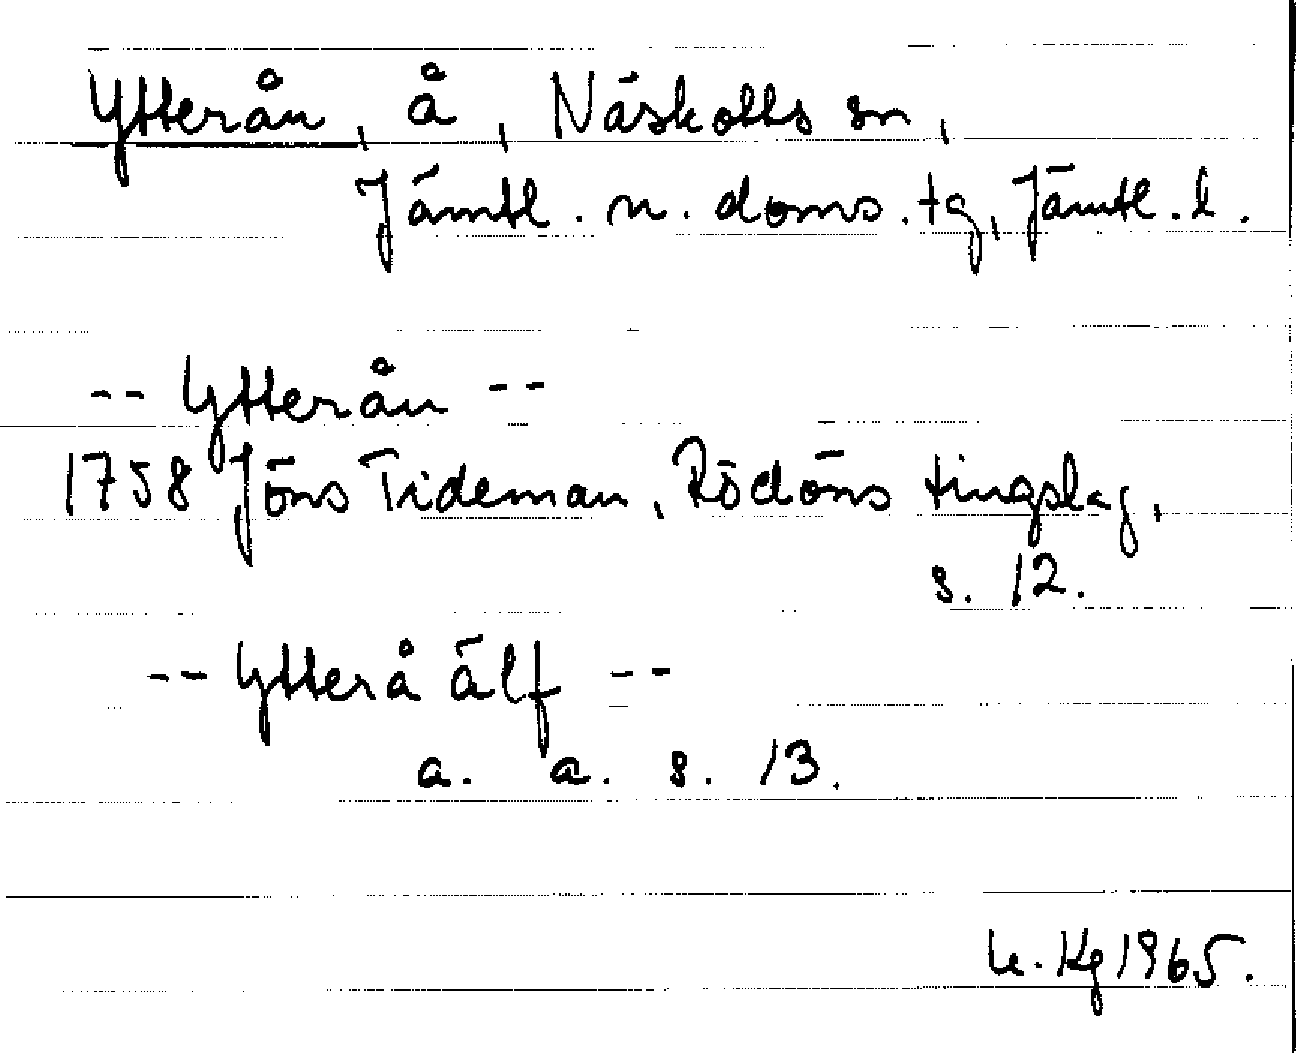 Ytterån, å, Näskotts sn,
Jämtl. n. doms. tg, Jämtl. l.
-- Ytterån --
1758 Jöns Tideman, Rödöns tingslag,
s. 12.
-- Ytterå älf --
a. a. s. 13.
Kg 1965.